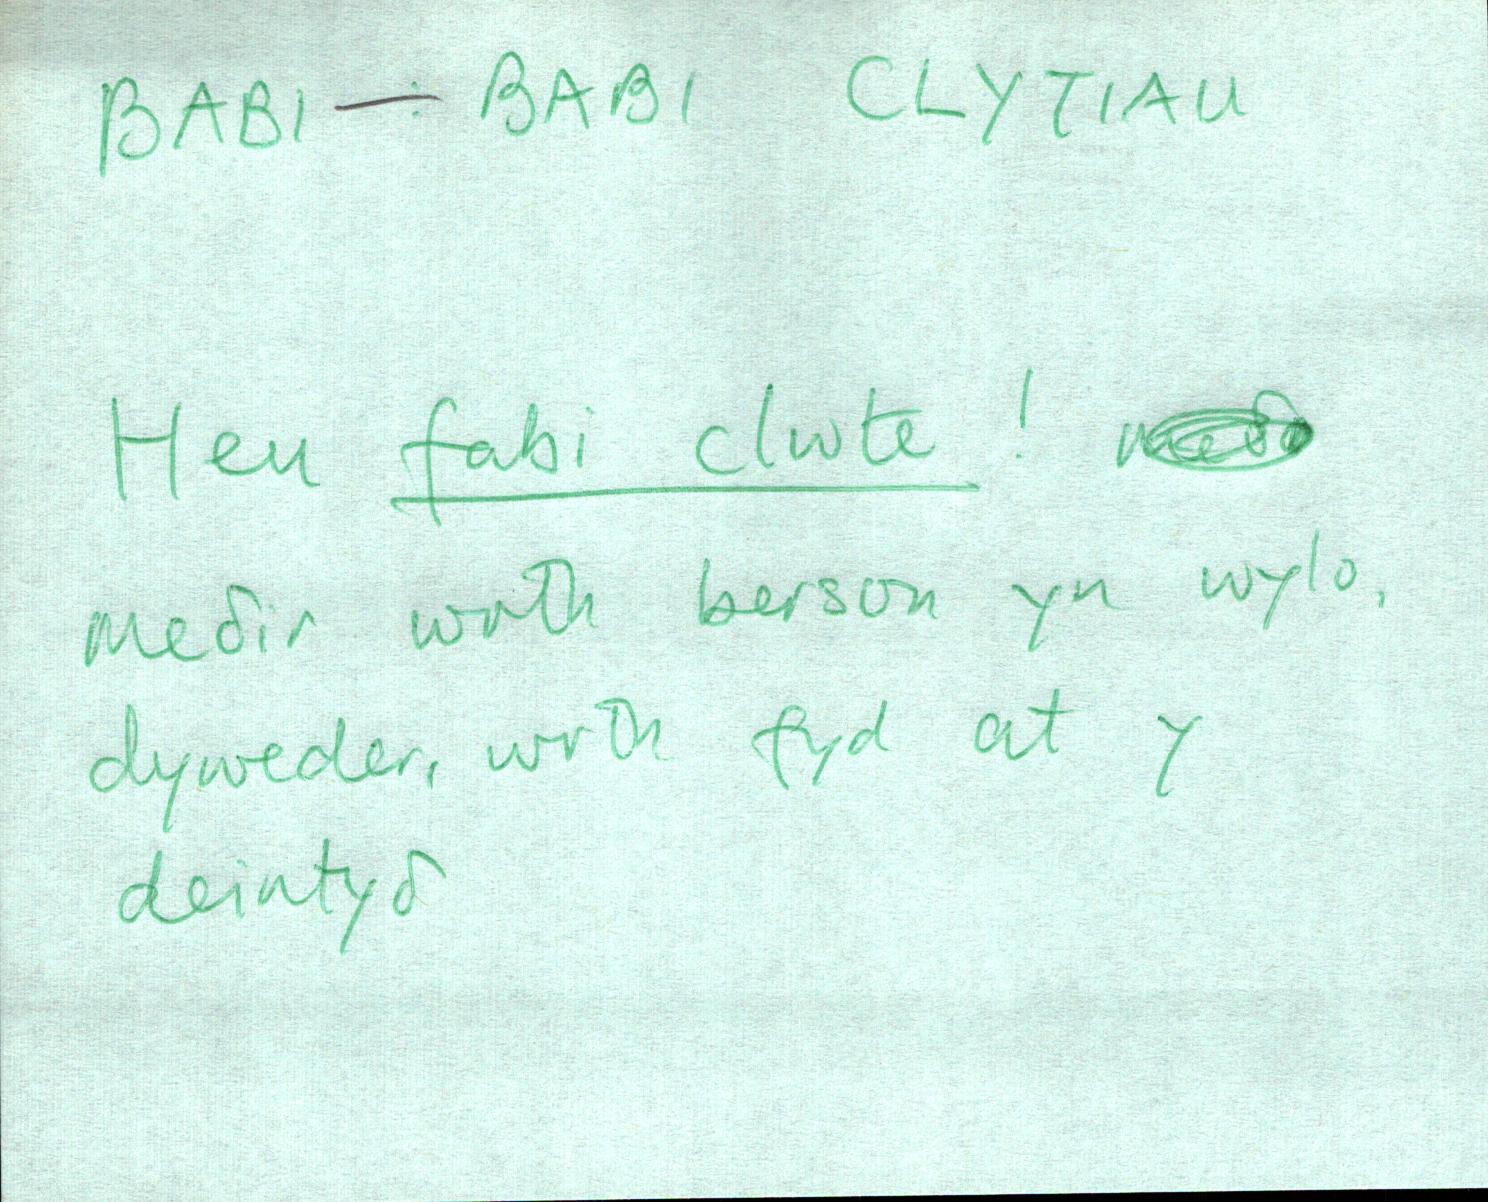 BABI — : BABI CLYTIAU
Hen fabi clwte!
meδir wrth berson yn wylo,
dyweder, wrth fyd at y
deintyδ